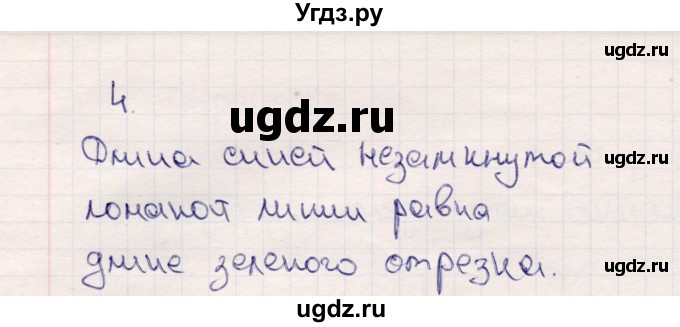 Угдз.ру
ugdz.ru
ugdz.ru
4.
ugdz.ru
Длина синей незамкнутой
ugdz.ru
ломаной линии равна
ugdz.ru
длине зеленого отрезка.
ugdz.ru
ugdz.ru